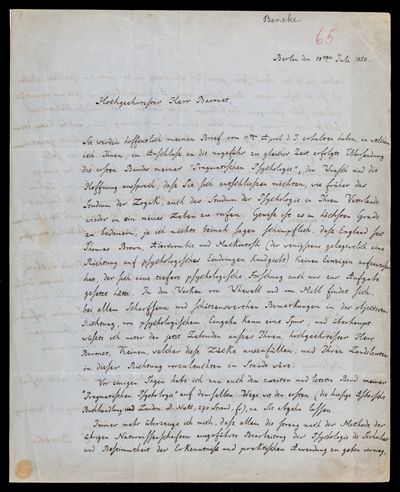 Beneke
65
Berlin den 18ten Juli 1850.
Hochgeehrtester Herr Baronet.
Sie werden hoffentlich meinen Brief vom 11ten April d. J. erhalten haben, in welchem
ich Ihnen, im Anschluß an die ungefähr zu gleicher Zeit erfolgte Übersendung
des ersten Bandes meiner "Pragmatischen Psychologie", den Wunsch und die
Hoffnung aussprach, daß Sie sich entschließen möchten, wie früher das
Studium der Logik, auch das Studium der Psychologie in Ihrem Vaterlande
wieder in ein neues Leben zu rufen. Gewiß ist es im höchsten Grade
zu bedauern, ja ich möchte beinah sagen schimpflich, daß England seit
Thomas Brown, Abercrombie und Mackintosh (der wenigstens gelegentlich eine
Richtung auf psychologisches Eindringen kundgiebt) keinen Einzigen aufzuweisen
hat, der sich eine tiefere psychologische Forschung auch nur zur Aufgabe
gesetzt hätte. In den Werken von Whewell und von Mill findet sich,
bei allem Scharfsinn und schätzenswerthen Bemerkungen in der objectiven
Richtung, von psychologischem Eingehn kaum eine Spur; und überhaupt
wüßte ich unter den jetzt Lebenden außer Ihnen, hochgeehrtester Herr
Baronet, Keinen, welcher diese Lücke auszufüllen, und Ihren Landsleuten
in dieser Richtung voranleuchten im Stande wäre.
Vor einigen Tagen habe ich nun auch den zweiten und letzten Band meiner
"Pragmatischen Psychologie" auf demselben Wege wie den ersten (die hiesige
Buchhandlung und London D. Nutt, 270 Strand,) an Sie abgehn lassen.
Immer mehr überzeuge ich mich, daß allein die streng nach der Methode der
übrigen Naturwissenschaften ausgeführte Bearbeitung der Psychologie die Sicherheit
und Bestimmtheit der Erkenntniß und praktischen Anwendung zu geben vermag,